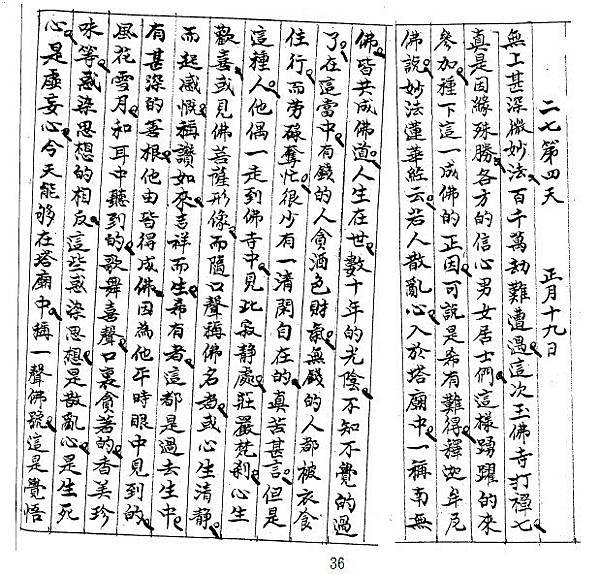 二七第四天 正月十九日
無上甚深微妙法百千萬劫難遭遇這次玉佛寺打禪七
真是因緣殊勝各方的信心男女居士們這樣踴躍的來
參加種下這一成佛的正因可說是希有難得釋迦牟尼
佛說妙法蓮華經云若人散亂心入於塔廟中一稱南無
佛皆共成佛道人生在世數十年的光陰不知不覺的過
了在這當中有錢的人貪酒色財氣無錢的人都被衣食
住行而勞碌奪忙很少有一清閑自在的真苦甚言但是
這種人他偶一走到佛寺中見此寂靜處莊嚴梵剎心生
歡喜或見佛菩薩形像而隨口聲稱佛名者或心生清靜
而起感慨稱讚如來吉祥而生希有者這都是過去生中
有甚深的善根他由皆得成佛因為他平時眼中見到的
風花雪月和耳中聽到的歌舞喜聲口裏貪著的香美珍
味等惑染思想的相反這些惑染思想是散亂心是生死
心是虛妄心今天能够在塔廟中稱一聲佛號這是覺悟
36